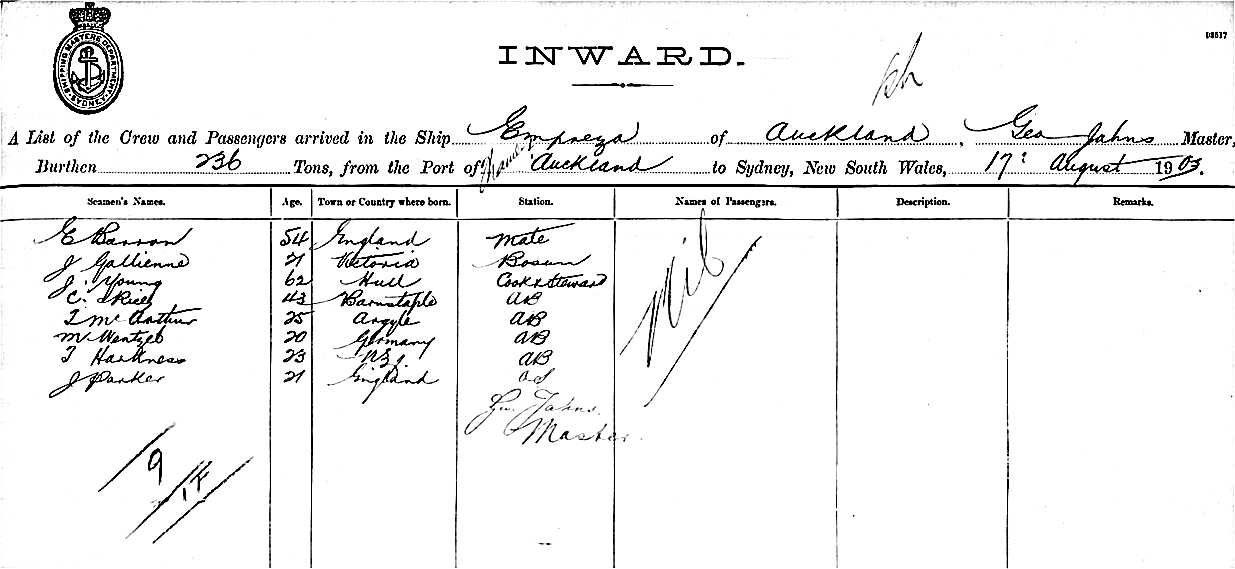 SHIPPING MASTERS DEPARTMENT SYDNEY
03517
INWARD.
A List of the Crew and Passengers arrived in the Ship Empreza of Auckland, Geo Johns Master,
Burthen 236 Tons, from the Port of Auckland to Sydney, New South Wales, 17: August 1903.
Seamen's Names. Age. Town or Country where born. Station. Names of Passengers. Description. Remarks.
E Barron 54 England Mate
J Gallienne 21 Victoria Bosun
J. Young 62 Hull Cook & Steward
C. 43 Barnstaple AB
T McArthur 25 Argyle AB
M Wentzel 20 Germany AB
T Harkness 23 NZ AB
J Parker 21 England OS
Nil
Geo. Johns.
Master.
9
14